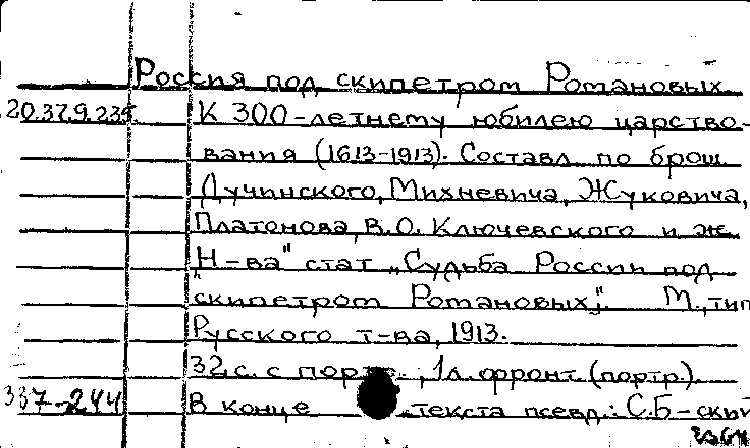 Россия под скипетром Романовых
20.37.9.235 К 300-летнему юбилею царство-
вания (1613-1913). Составл. по брош.
Лучинского, Михневича, Жуковича,
Платонова, В.О. Ключевского и ж.
"Н-ва" стат. „Судьба России под
скипетром Романовых". М., тип.
Русского т-ва, 1913.
32 с. с портр., 1 л. фронт. (портр.).
337-244 В конце текста псевд.: С.Б-ский